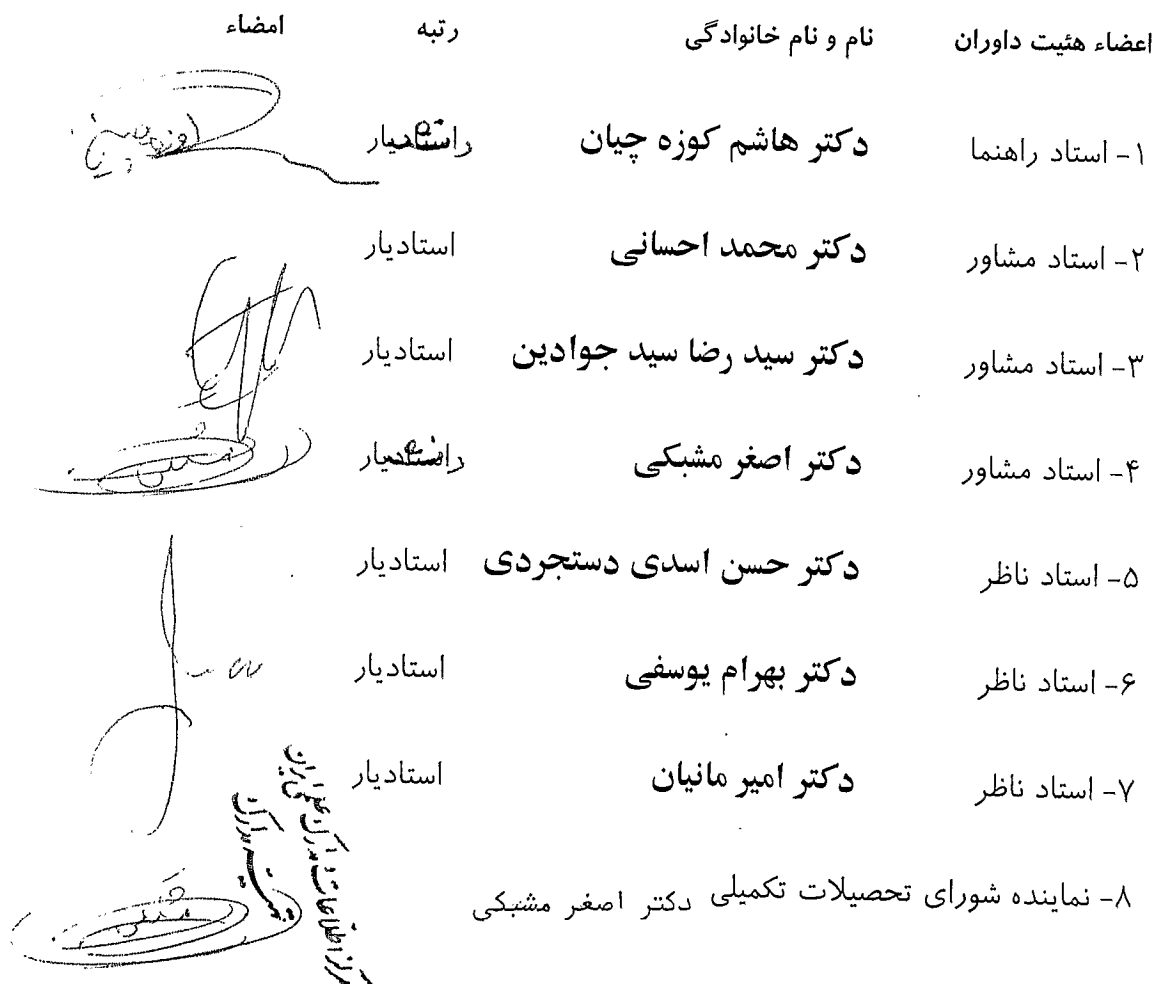 اعضاء هئیت داوران نام و نام خانوادگی رتبه امضاء
۱- استاد راهنما دکتر هاشم کوزه چیان
۲- استاد مشاور دکتر محمد احسانی استادیار
۳- استاد مشاور دکتر سید رضا سید جوادین استادیار
۴- استاد مشاور دکتر اصغر مشبکی
۵- استاد ناظر دکتر حسن اسدی دستجردی استادیار
۶- استاد ناظر دکتر بهرام یوسفی استادیار
۷- استاد ناظر دکتر امیر مانیان استادیار
۸- نماینده شورای تحصیلات تکمیلی دکتر اصغر مشبکی
مرکز اطلاعات و مدارک علمی ایران
تثبیت مدارک